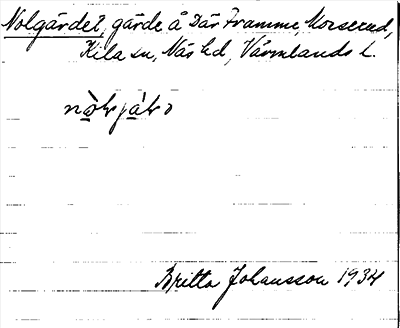 Nolgärdet, gärde å Där Framme, Morserud,
Kila sn, Näs hd, Värmlands l.
Britta Johansson 1934